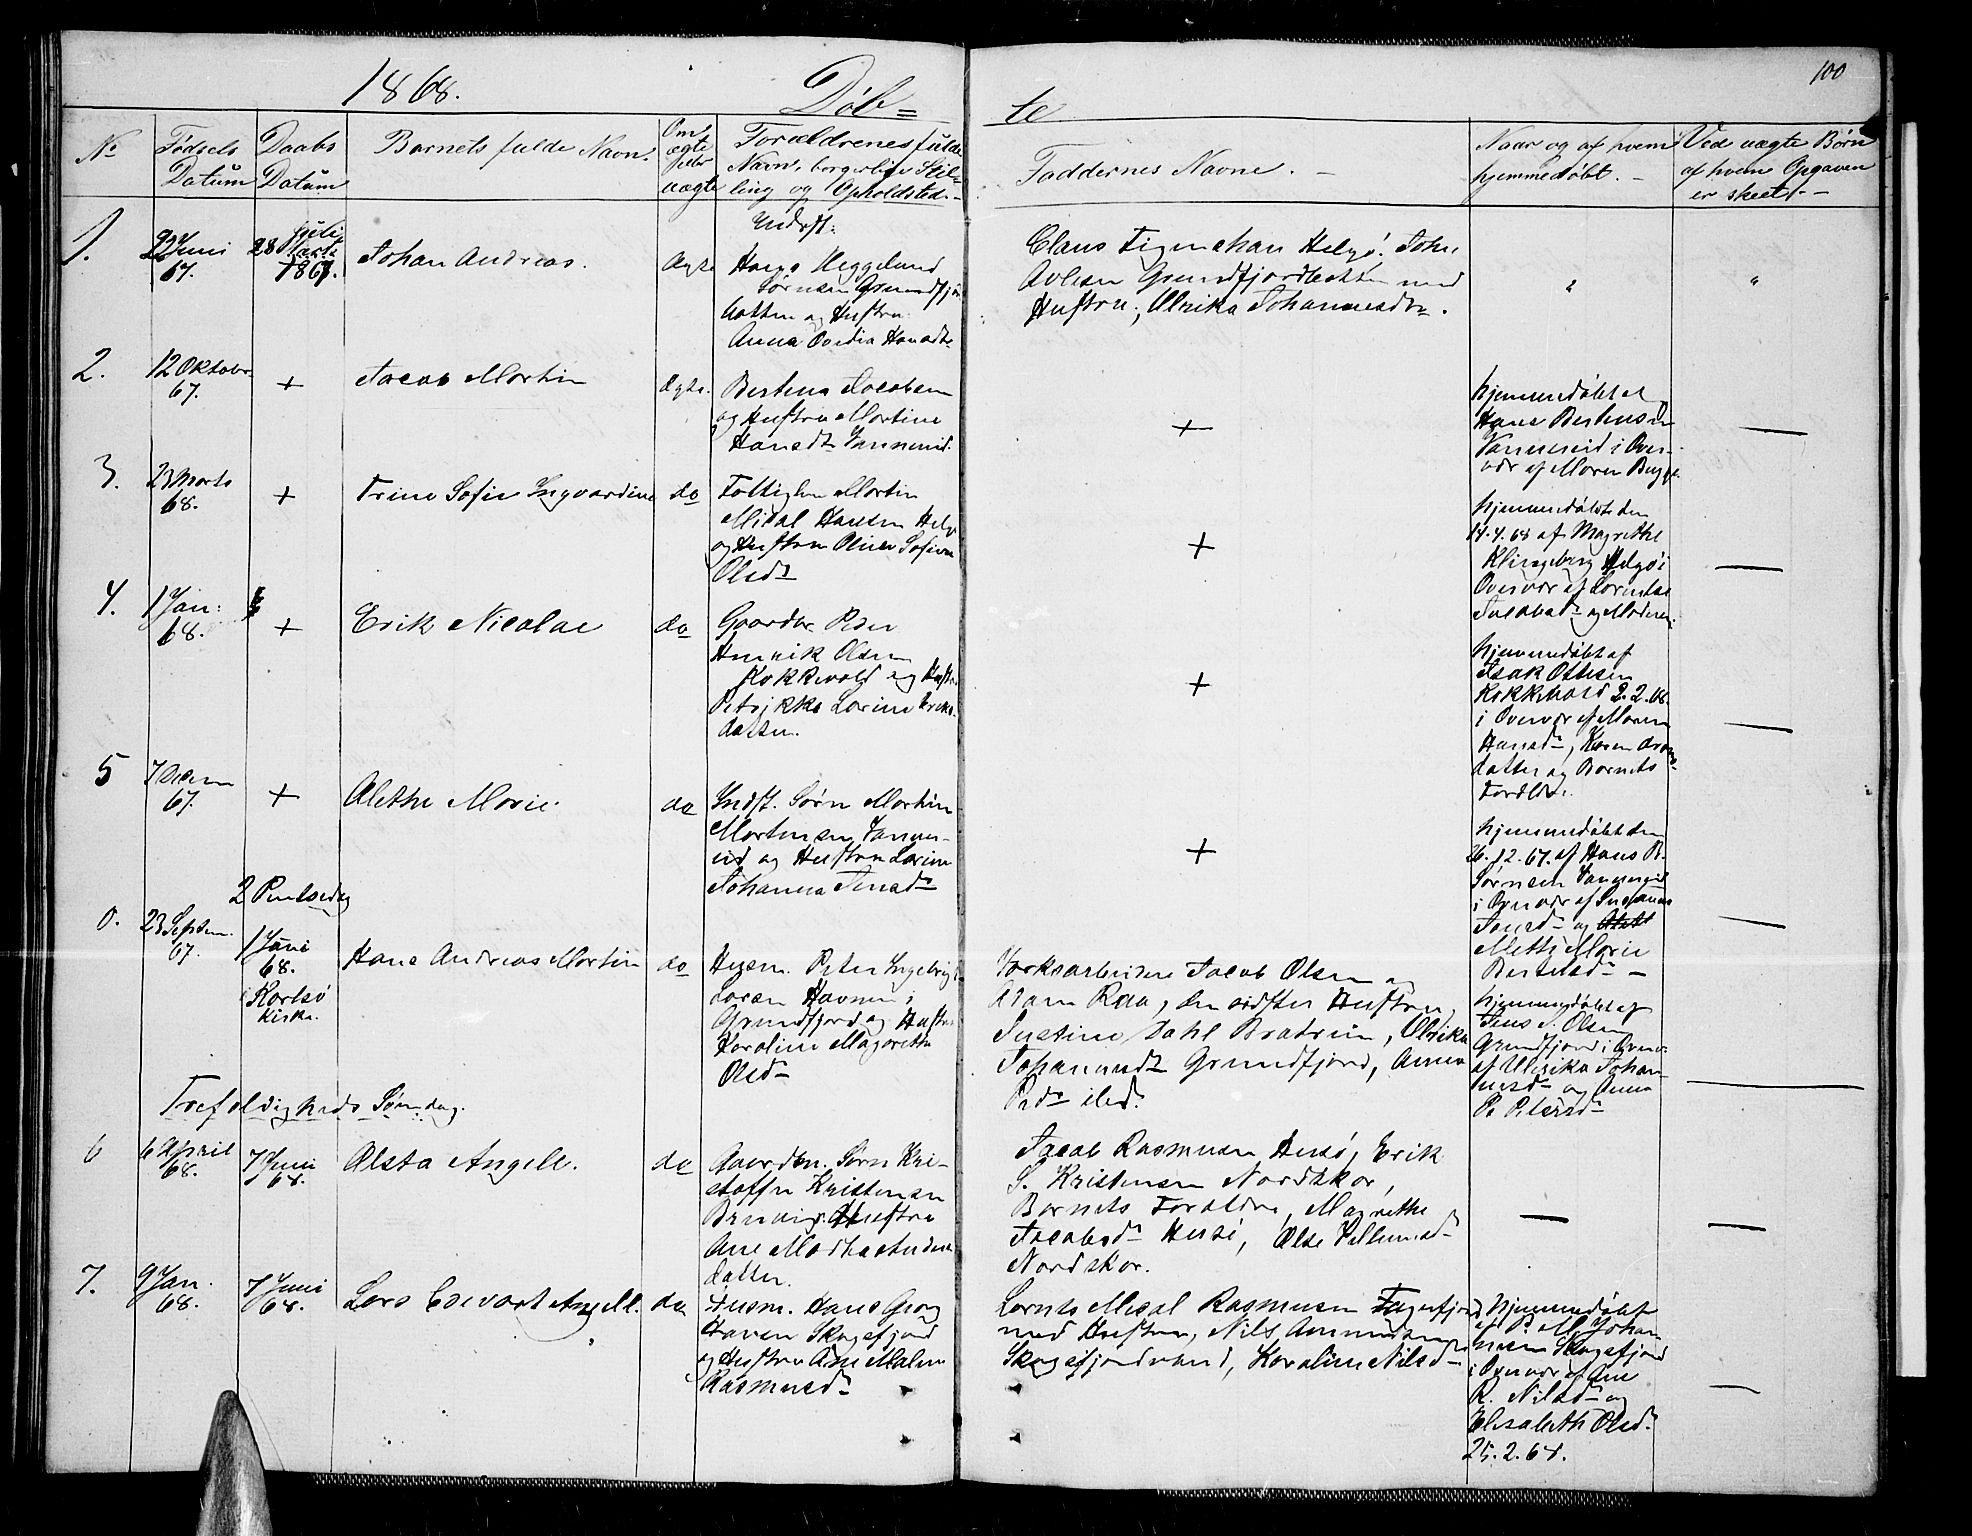 1868.
Døb=
te
100
No
Fødsels
Datum
Daabs
Datum
Barnets fulde Navn.
Om
ægte
eller
uægte
Forældrenes fulde
Navn, borgerlige Stil-
ling og Opholdsted.-
Faddernes Navne. -
Naar og af hvem
hjemmedøbt. -
Ved uægte Børn
af hvem Opgaven
er skeet. -
1.
22 Juni
67.
28 Juli
1867.
Johan Andreas.
Ægte
Indst.
Hans Heggelund
Sørensen Grundfjord
botten og Hustru
Anna Ovedia Hansdtr
Claus Figenskau Helgø, John
Grundfjordbotten med
Hustru, Ulrika Johannesdtr.
"
"
2.
12 Oktober
67.
+
Jacob Martin
Ægte.
Bertheus Jacobsen
og Hustru Martine
Hansdtr Vannereid.
+
hjemmedøbt af
Hans Bertheusen
Vannereid i Over-
vær af Moren
—
3.
23 Marts
68.
+
Trine Sofie Ingvardine
do
Fattiglem Martin
Mical Hansen Helgø
og Hustru Oline Sofie
Olsdtr
+
hjemmedøbt den
14.4.68 af Magrethe
Klingeberg Helgø i
Overvær af Lorentse
Jacobsdtr og Moderen.
—
4.
1 Jan:
68.
+
Erik Nicolai
do
Gaardbr. Peder
Henrik Olsen
Kokkevold og Hustr.
Petrikke Larine Eriks-
datter.
+
hjemmedøbt af
Isak Ottesen
Kokkevold 2.2.68.
i Overvær af Maren
Hansdtr, Karen Arons-
datter og Barnets
Forældre.
—
5
7 Decem
67.
+
Alethe Marie.
do
Indst. Sørn Martin
Mortensen Vanner-
eid og Hustru Larine
Johanna Jensdtr
+
hjemmedøbt den
26.12.67. af Hans B.
Sørnsen Vannereid
i Overvær af Susanne
Jensdtr og
Mette Marie
Bertelsdtr -
—
2 Pintsedag
0.
23 Septem.
67.
1 Juni
68.
Karlsø
Kirke.
Hans Andreas Martin
do
Husm. Peter Ingebrigt
Larsen Havnen i
Grundfjord og Hustru
Karoline Magrethe
Olsdtr
Værksarbeidere Jacob Olsen og
Adam Raa, den sidstes Hustru,
Justine Dahl Bratrein, Ulrika
Johannesdtr Grundfjord, Anna
Pedtr ibid.
hjemmedøbt af
Jens J. Olsen
Grundfjord i Overv.
af Ulrika Johan-
nesdtr og Anna
P. Petersdtr
—
Trefoldigheds Søndag.
6
6 April
68.
7 Juni
68.
Alsta Angell.
do
Gaardbr. Sørn Kri-
stoffer Kristensen
Hustru
Ane Martha Anders-
datter.
Jacob Rasmusen Husø, Erik
S. Kristensen Nordskor,
Barnets Forældre, Magrethe
Jacobsdtr Husø, Else Villumsdtr
Nordskor.
—
—
7.
9 Jan.
68.
7 Juni
68.
Lars Edevart Angell.
do
Husm. Hans Georg
Larsen Skogsfjord
og Hustru Ane Malene
Rasmusdtr
Lornts Mical Rasmusen Fagerfjord
med Hustru, Nils Amundsen
Skogsfjordvand, Karoline Nilsdtr
hjemmedøbt
af P. M. Johan-
nesen Skogsfjord
i Overvær af Ane
R. Nilsdtr og
Elisabeth Olsdtr
25.2.68.
—